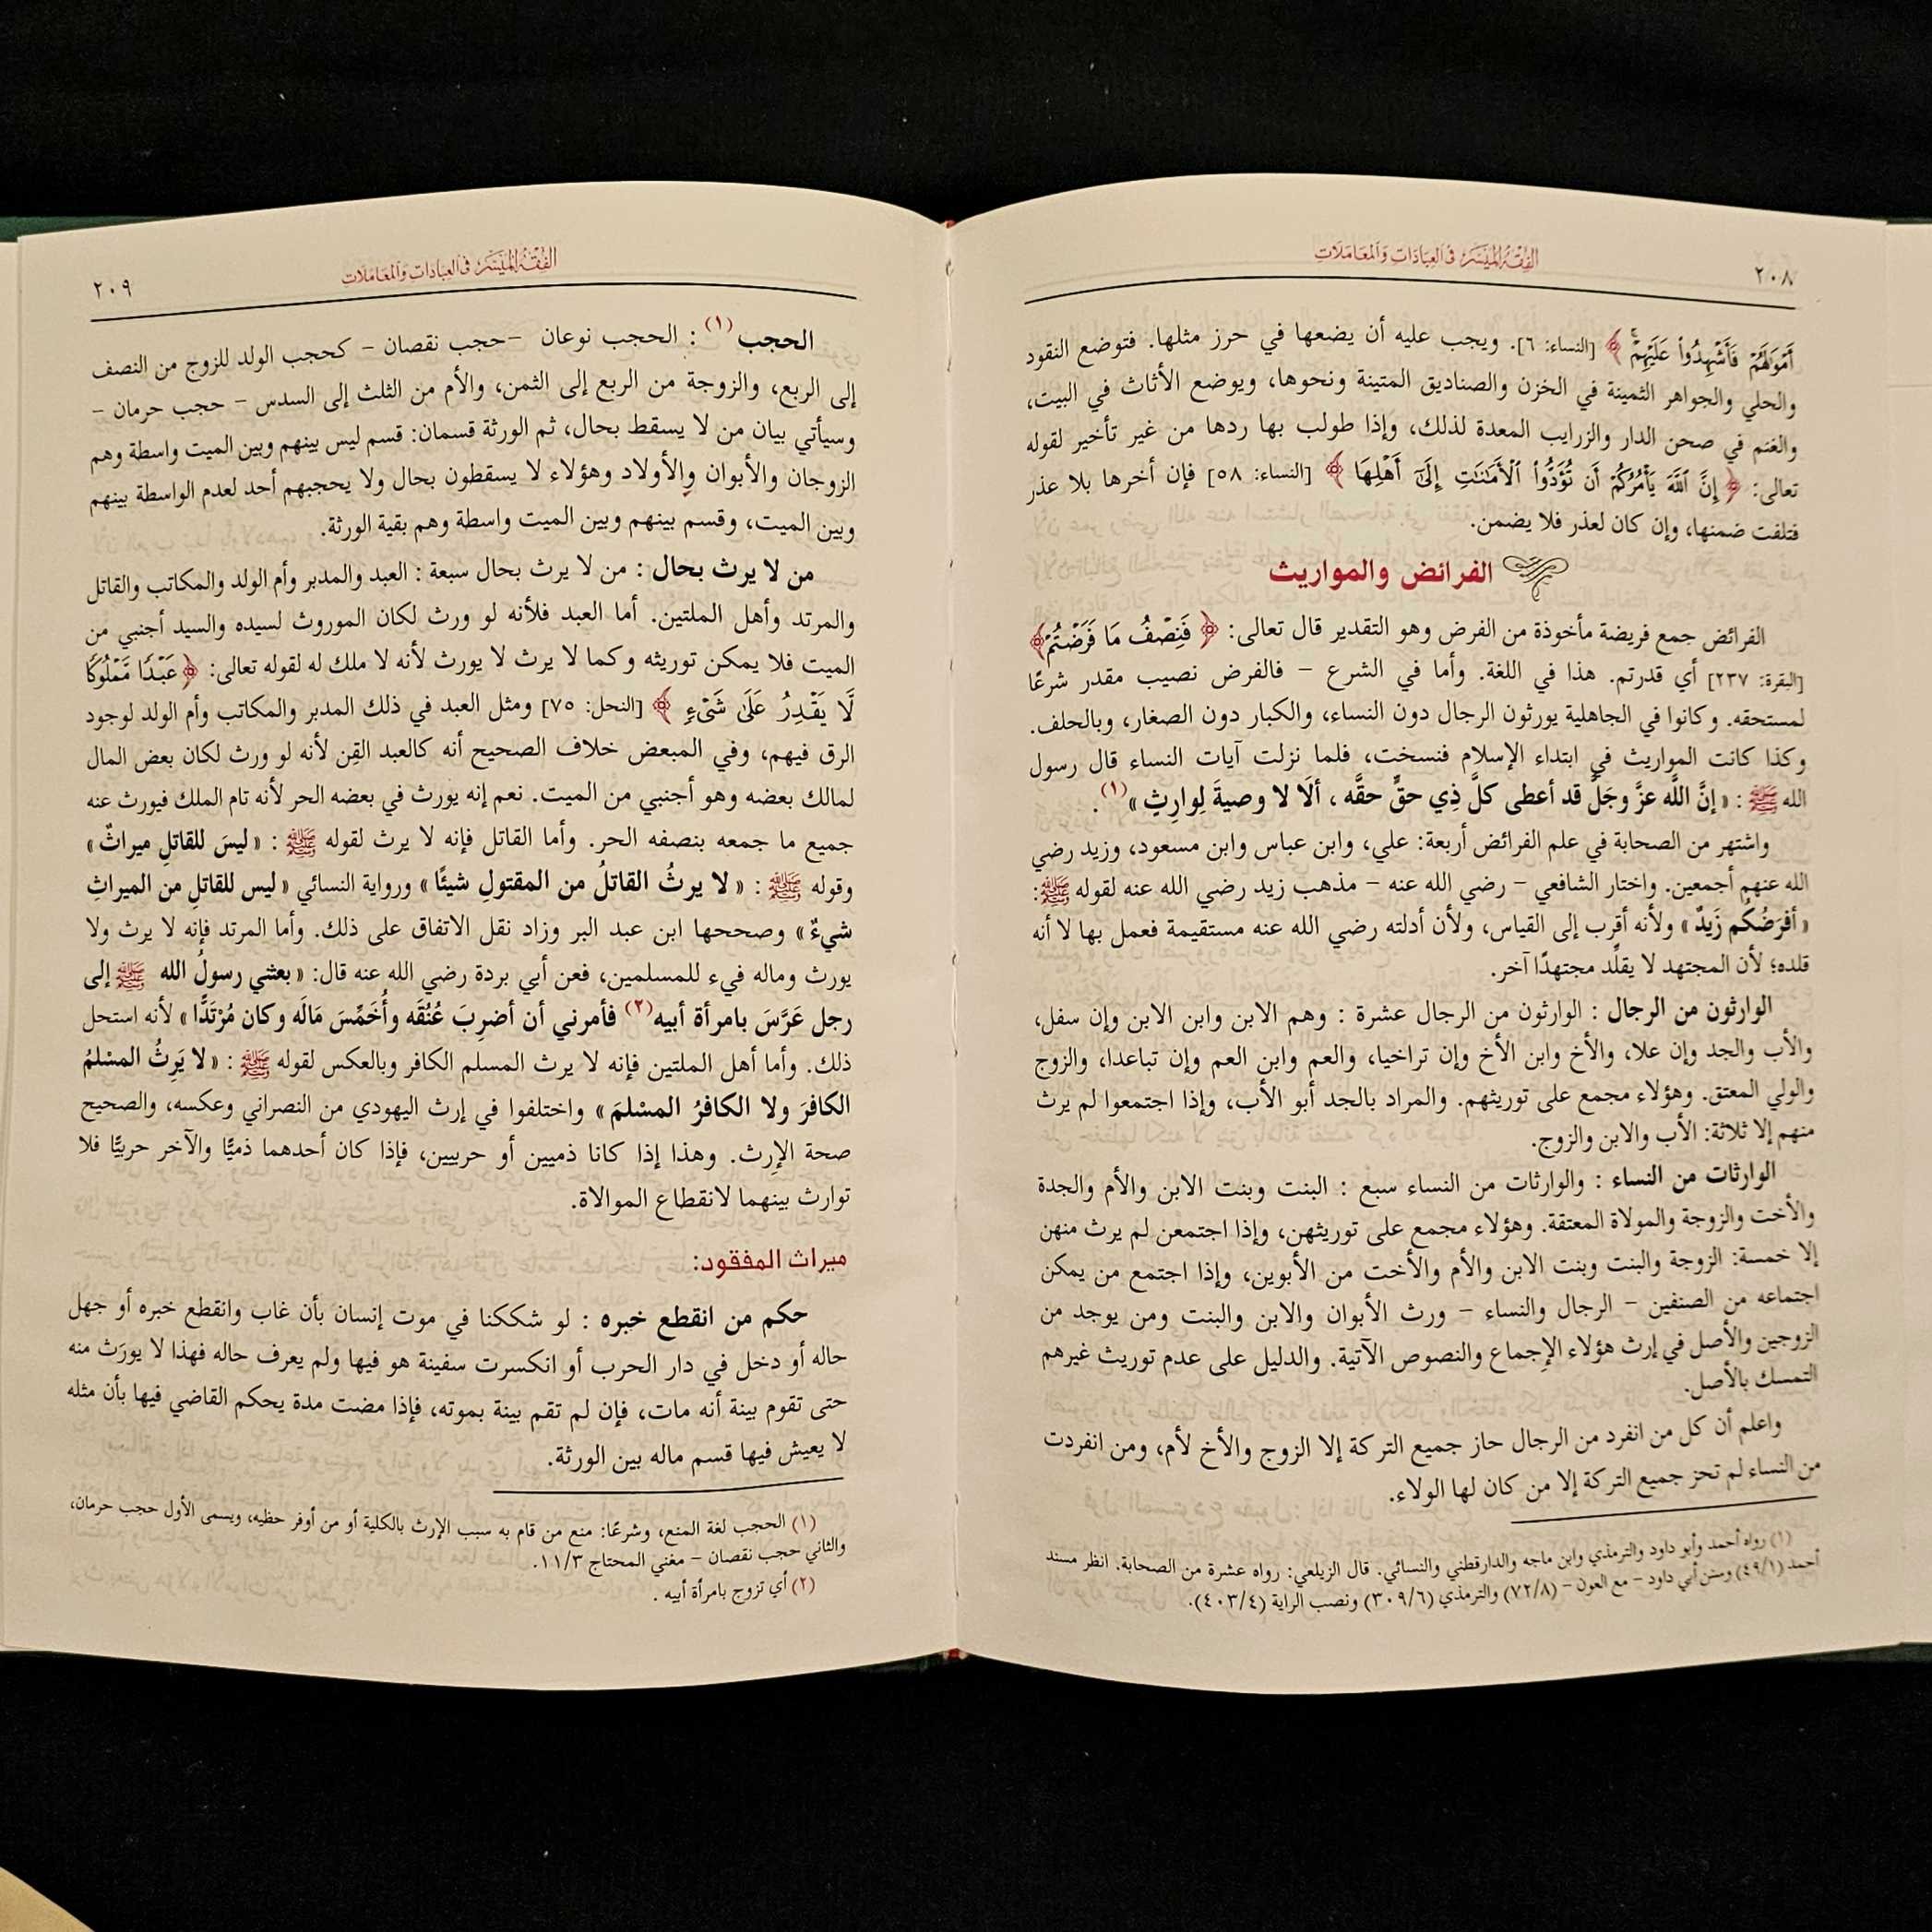 ٢٠٨
الفِقْهُ المُيَسَّرُ في العِبَادَاتِ وَالمُعَامَلَاتِ
أَمْوَالَهُمْ فَأَشْهِدُوا عَلَيْهِمْ ﴾ [النساء: ٦]. ويجب عليه أن يضعها في حرز مثلها. فتوضع النقود
والحلي والجواهر الثمينة في الخزن والصناديق المتينة ونحوها، ويوضع الأثاث في البيت،
والغنم في صحن الدار والزرايب المعدة لذلك، وإذا طولب بها ردها من غير تأخير لقوله
تعالى: ﴿ إِنَّ ٱللَّهَ يَأْمُرُكُمْ أَن تُؤَدُّوا۟ ٱلْأَمَـٰنَـٰتِ إِلَىٰٓ أَهْلِهَا ﴾ [النساء: ٥٨] فإن أخرها بلا عذر
فتلفت ضمنها، وإن كان لعذر فلا يضمن.
الفرائض والمواريث
الفرائض جمع فريضة مأخوذة من الفرض وهو التقدير قال تعالى: ﴿ فَنِصْفُ مَا فَرَضْتُمْ﴾
[البقرة: ٢٣٧] أي قدرتم. هذا في اللغة. وأما في الشرع – فالفرض نصيب مقدر شرعًا
لمستحقه. وكانوا في الجاهلية يورثون الرجال دون النساء، والكبار دون الصغار، وبالحلف.
وكذا كانت المواريث في ابتداء الإسلام فنسخت، فلما نزلت آيات النساء قال رسول
الله ﷺ : « إنَّ اللَّه عزَّ وجَلَّ قد أعطى كلَّ ذِي حقٍّ حقَّه ، ألَا لا وصيةَ لِوارِثٍ »(١).
واشتهر من الصحابة في علم الفرائض أربعة: علي، وابن عباس وابن مسعود، وزيد رضي
الله عنهم أجمعين. واختار الشافعي – رضي الله عنه – مذهب زيد رضي الله عنه لقوله ﷺ:
« أفرَضُكُم زَيدٌ » ولأنه أقرب إلى القياس، ولأن أدلته رضي الله عنه مستقيمة فعمل بها لا أنه
قلده؛ لأن المجتهد لا يقلِّد مجتهدًا آخر.
الوارثون من الرجال : الوارثون من الرجال عشرة : وهم الابن وابن الابن وإن سفل،
والأب والجد وإن علا، والأخ وابن الأخ وإن تراخيا، والعم وابن العم وإن تباعدا، والزوج
والولي المعتق. وهؤلاء مجمع على توريثهم. والمراد بالجد أبو الأب، وإذا اجتمعوا لم يرث
منهم إلا ثلاثة: الأب والابن والزوج.
الوارثات من النساء : والوارثات من النساء سبع : البنت وبنت الابن والأم والجدة
والأخت والزوجة والمولاة المعتقة. وهؤلاء مجمع على توريثهن، وإذا اجتمعن لم يرث منهن
إلا خمسة: الزوجة والبنت وبنت الابن والأم والأخت من الأبوين، وإذا اجتمع من يمكن
اجتماعه من الصنفين – الرجال والنساء – ورث الأبوان والابن والبنت ومن يوجد من
الزوجين والأصل في إرث هؤلاء الإجماع والنصوص الآتية. والدليل على عدم توريث غيرهم
التمسك بالأصل.
واعلم أن كل من انفرد من الرجال حاز جميع التركة إلا الزوج والأخ لأم، ومن انفردت
من النساء لم تحز جميع التركة إلا من كان لها الولاء.
(١) رواه أحمد وأبو داود والترمذي وابن ماجه والدارقطني والنسائي. قال الزيلعي: رواه عشرة من الصحابة. انظر مسند
أحمد (٤٩/١) وسنن أبي داود – مع العون – (٧٢/٨) والترمذي (٣٠٩/٦) ونصب الراية (٤٠٣/٤).
الفِقْهُ المُيَسَّرُ في العِبَادَاتِ وَالمُعَامَلَاتِ
٢٠٩
الحجب (١) : الحجب نوعان –حجب نقصان – كحجب الولد للزوج من النصف
إلى الربع، والزوجة من الربع إلى الثمن، والأم من الثلث إلى السدس – حجب حرمان –
وسيأتي بيان من لا يسقط بحال، ثم الورثة قسمان: قسم ليس بينهم وبين الميت واسطة وهم
الزوجان والأبوان والأولاد وهؤلاء لا يسقطون بحال ولا يحجبهم أحد لعدم الواسطة بينهم
وبين الميت، وقسم بينهم وبين الميت واسطة وهم بقية الورثة.
من لا يرث بحال : من لا يرث بحال سبعة : العبد والمدبر وأم الولد والمكاتب والقاتل
والمرتد وأهل الملتين. أما العبد فلأنه لو ورث لكان الموروث لسيده والسيد أجنبي من
الميت فلا يمكن توريثه وكما لا يرث لا يورث لأنه لا ملك له لقوله تعالى: ﴿عَبْدًا مَّمْلُوكًا
لَّا يَقْدِرُ عَلَىٰ شَىْءٍ ﴾ [النحل: ٧٥] ومثل العبد في ذلك المدبر والمكاتب وأم الولد لوجود
الرق فيهم، وفي المبعض خلاف الصحيح أنه كالعبد القِن لأنه لو ورث لكان بعض المال
لمالك بعضه وهو أجنبي من الميت. نعم إنه يورث في بعضه الحر لأنه تام الملك فيورث عنه
جميع ما جمعه بنصفه الحر. وأما القاتل فإنه لا يرث لقوله ﷺ : « ليسَ للقاتلِ ميراثٌ »
وقوله ﷺ : « لا يرثُ القاتلُ من المقتولِ شيئًا » ورواية النسائي « ليس للقاتلِ من الميراثِ
شيءٌ » وصححها ابن عبد البر وزاد نقل الاتفاق على ذلك. وأما المرتد فإنه لا يرث ولا
يورث وماله فيء للمسلمين، فعن أبي بردة رضي الله عنه قال: « بعثني رسولُ الله ﷺ إلى
رجل عَرَّسَ بامرأة أبيه(٢) فأمرني أن أضرِبَ عُنُقَه وأُخَمِّسَ مَالَه وكان مُرْتَدًّا » لأنه استحل
ذلك. وأما أهل الملتين فإنه لا يرث المسلم الكافر وبالعكس لقوله ﷺ : « لا يَرِثُ المسْلمُ
الكافرَ ولا الكافرُ المسْلمَ » واختلفوا في إرث اليهودي من النصراني وعكسه، والصحيح
صحة الإرث. وهذا إذا كانا ذميين أو حربيين، فإذا كان أحدهما ذميًّا والآخر حربيًّا فلا
توارث بينهما لانقطاع الموالاة.
ميراث المفقود:
حكم من انقطع خبره : لو شككنا في موت إنسان بأن غاب وانقطع خبره أو جهل
حاله أو دخل في دار الحرب أو انكسرت سفينة هو فيها ولم يعرف حاله فهذا لا يورَث منه
حتى تقوم بينة أنه مات، فإن لم تقم بينة بموته، فإذا مضت مدة يحكم القاضي فيها بأن مثله
لا يعيش فيها قسم ماله بين الورثة.
(١) الحجب لغة المنع، وشرعًا: منع من قام به سبب الإرث بالكلية أو من أوفر حظيه، ويسمى الأول حجب حرمان،
والثاني حجب نقصان – مغني المحتاج ١١/٣.
(٢) أي تزوج بامرأة أبيه .